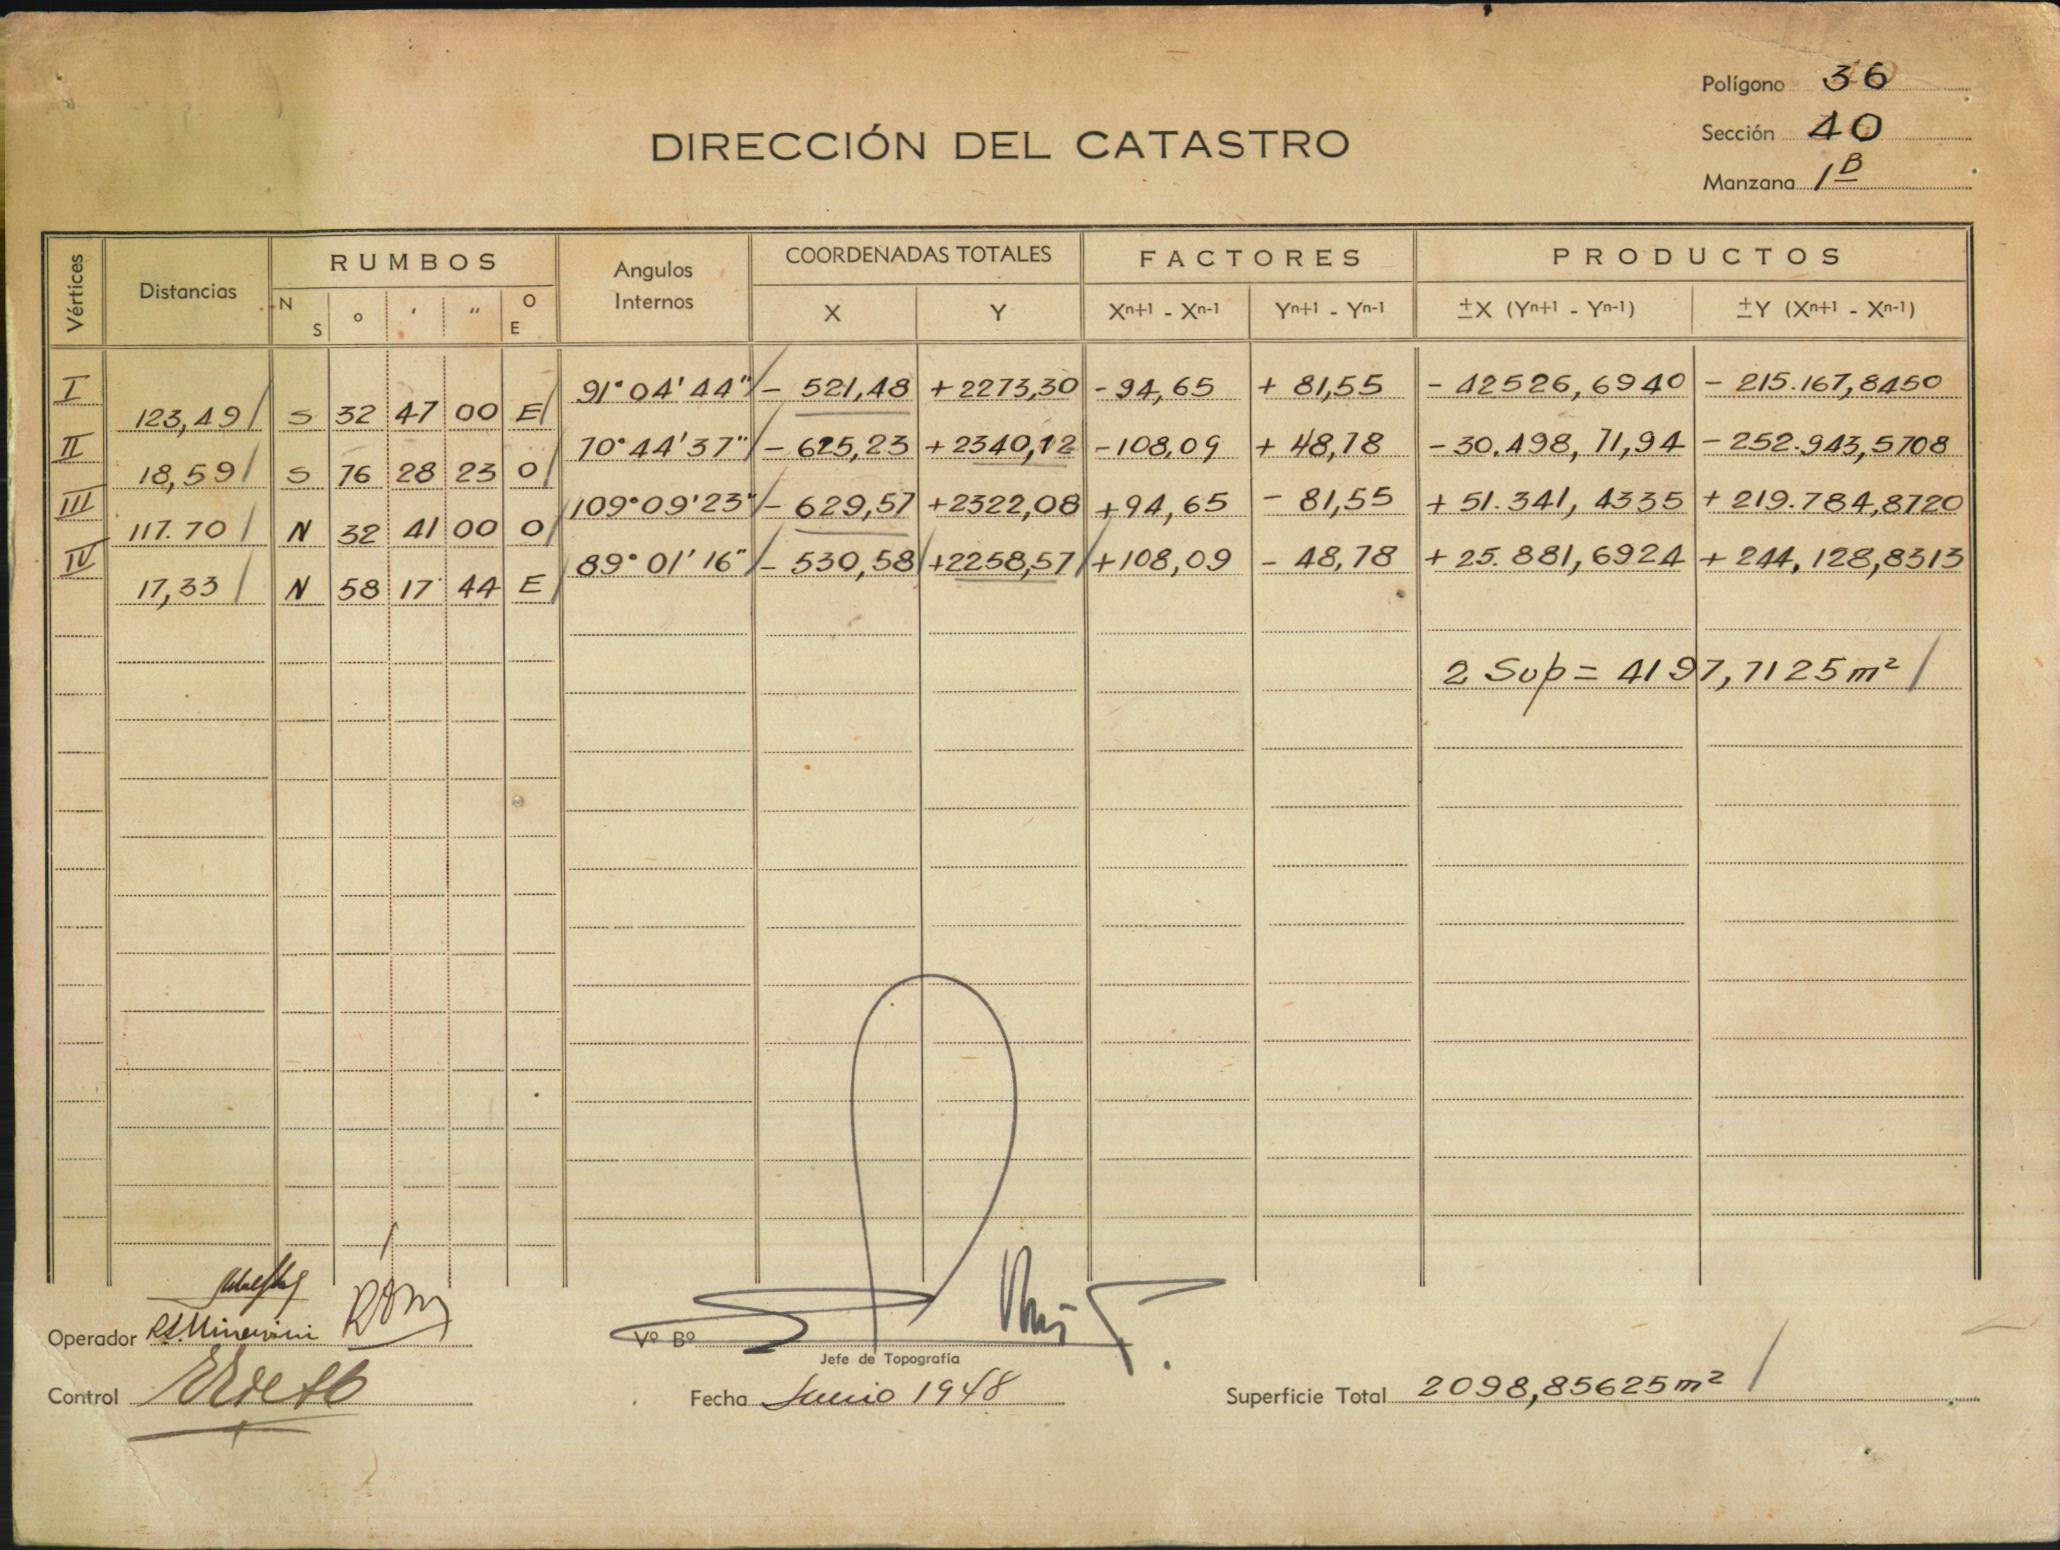 Polígono 36
DIRECCIÓN DEL CATASTRO
Sección 40
Manzana 1 B
Vértices Distancias RUMBOS Angulos Internos COORDENADAS TOTALES FACTORES PRODUCTOS
N S ° ' " O E X Y Xn+1 - Xn-1 Yn+1 - Yn-1 ±X (Yn+1 - Yn-1) ±Y (Xn+1 - Xn-1)
I 91° 04' 44" - 521,48 +2273,30 -94,65 + 81,55 - 42526,6940 - 215.167,8450
123,49 S 32 47 00 E
II 70° 44' 37" - 625,23 +2340,12 -108,09 + 48,78 - 30.498,71,94 - 252.943,5708
18,59 S 76 28 23 O
III 109° 09' 23" - 629,57 +2322,08 +94,65 - 81,55 + 51.341,4335 + 219.784,8720
117.70 N 32 41 00 O
IV 89° 01' 16" - 530,58 +2258,57 +108,09 - 48,78 + 25.881,6924 + 244,128,8313
17,33 N 58 17 44 E
2 Sup = 4197,7125 m²
Operador
Vº Bº
Jefe de Topografía
Control
Fecha Junio 1948
Superficie Total 2098,85625 m²